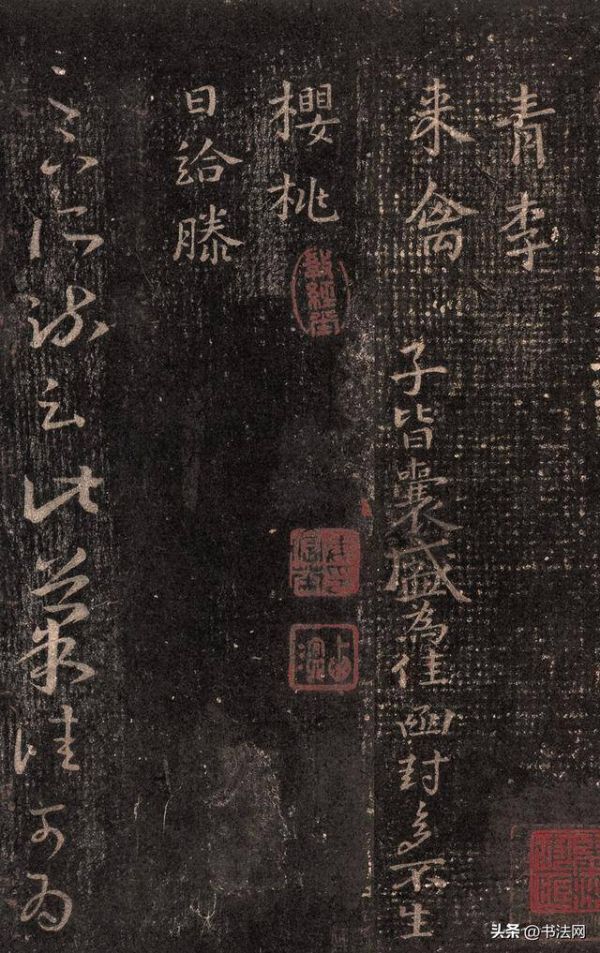 青李
来禽
子皆囊盛為佳函封多不生
櫻桃
日給滕
足下所疏云此菓佳可為
头条@书法网